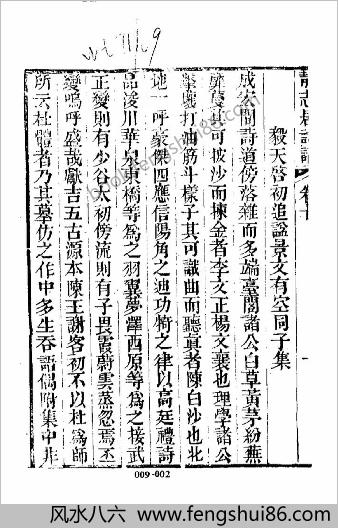 靜志居詩話 卷十
毅天啓初追諡景文有空同子集
成宏間詩道傍落雜而多端臺閣諸公白草黃茅紛蕪
靡蔓其可披沙而揀金者李文正楊文襄也理學諸公
擊壤打油筋斗樣子其可識曲而聽眞者陳白沙也北
地一呼豪傑四應信陽角之迪功犄之律以高廷禮詩
品浚川華泉東橋等爲之羽翼夢澤西原等爲之接武
正變則有少谷太初傍流則有子畏霞蔚雲蒸忽焉丕
變嗚呼盛哉獻吉五古源本陳王謝客初不以杜爲師
所云杜體者乃其摹仿之作中多生吞語偶附集中非
009-002
风水八六-www.fengshui86.com